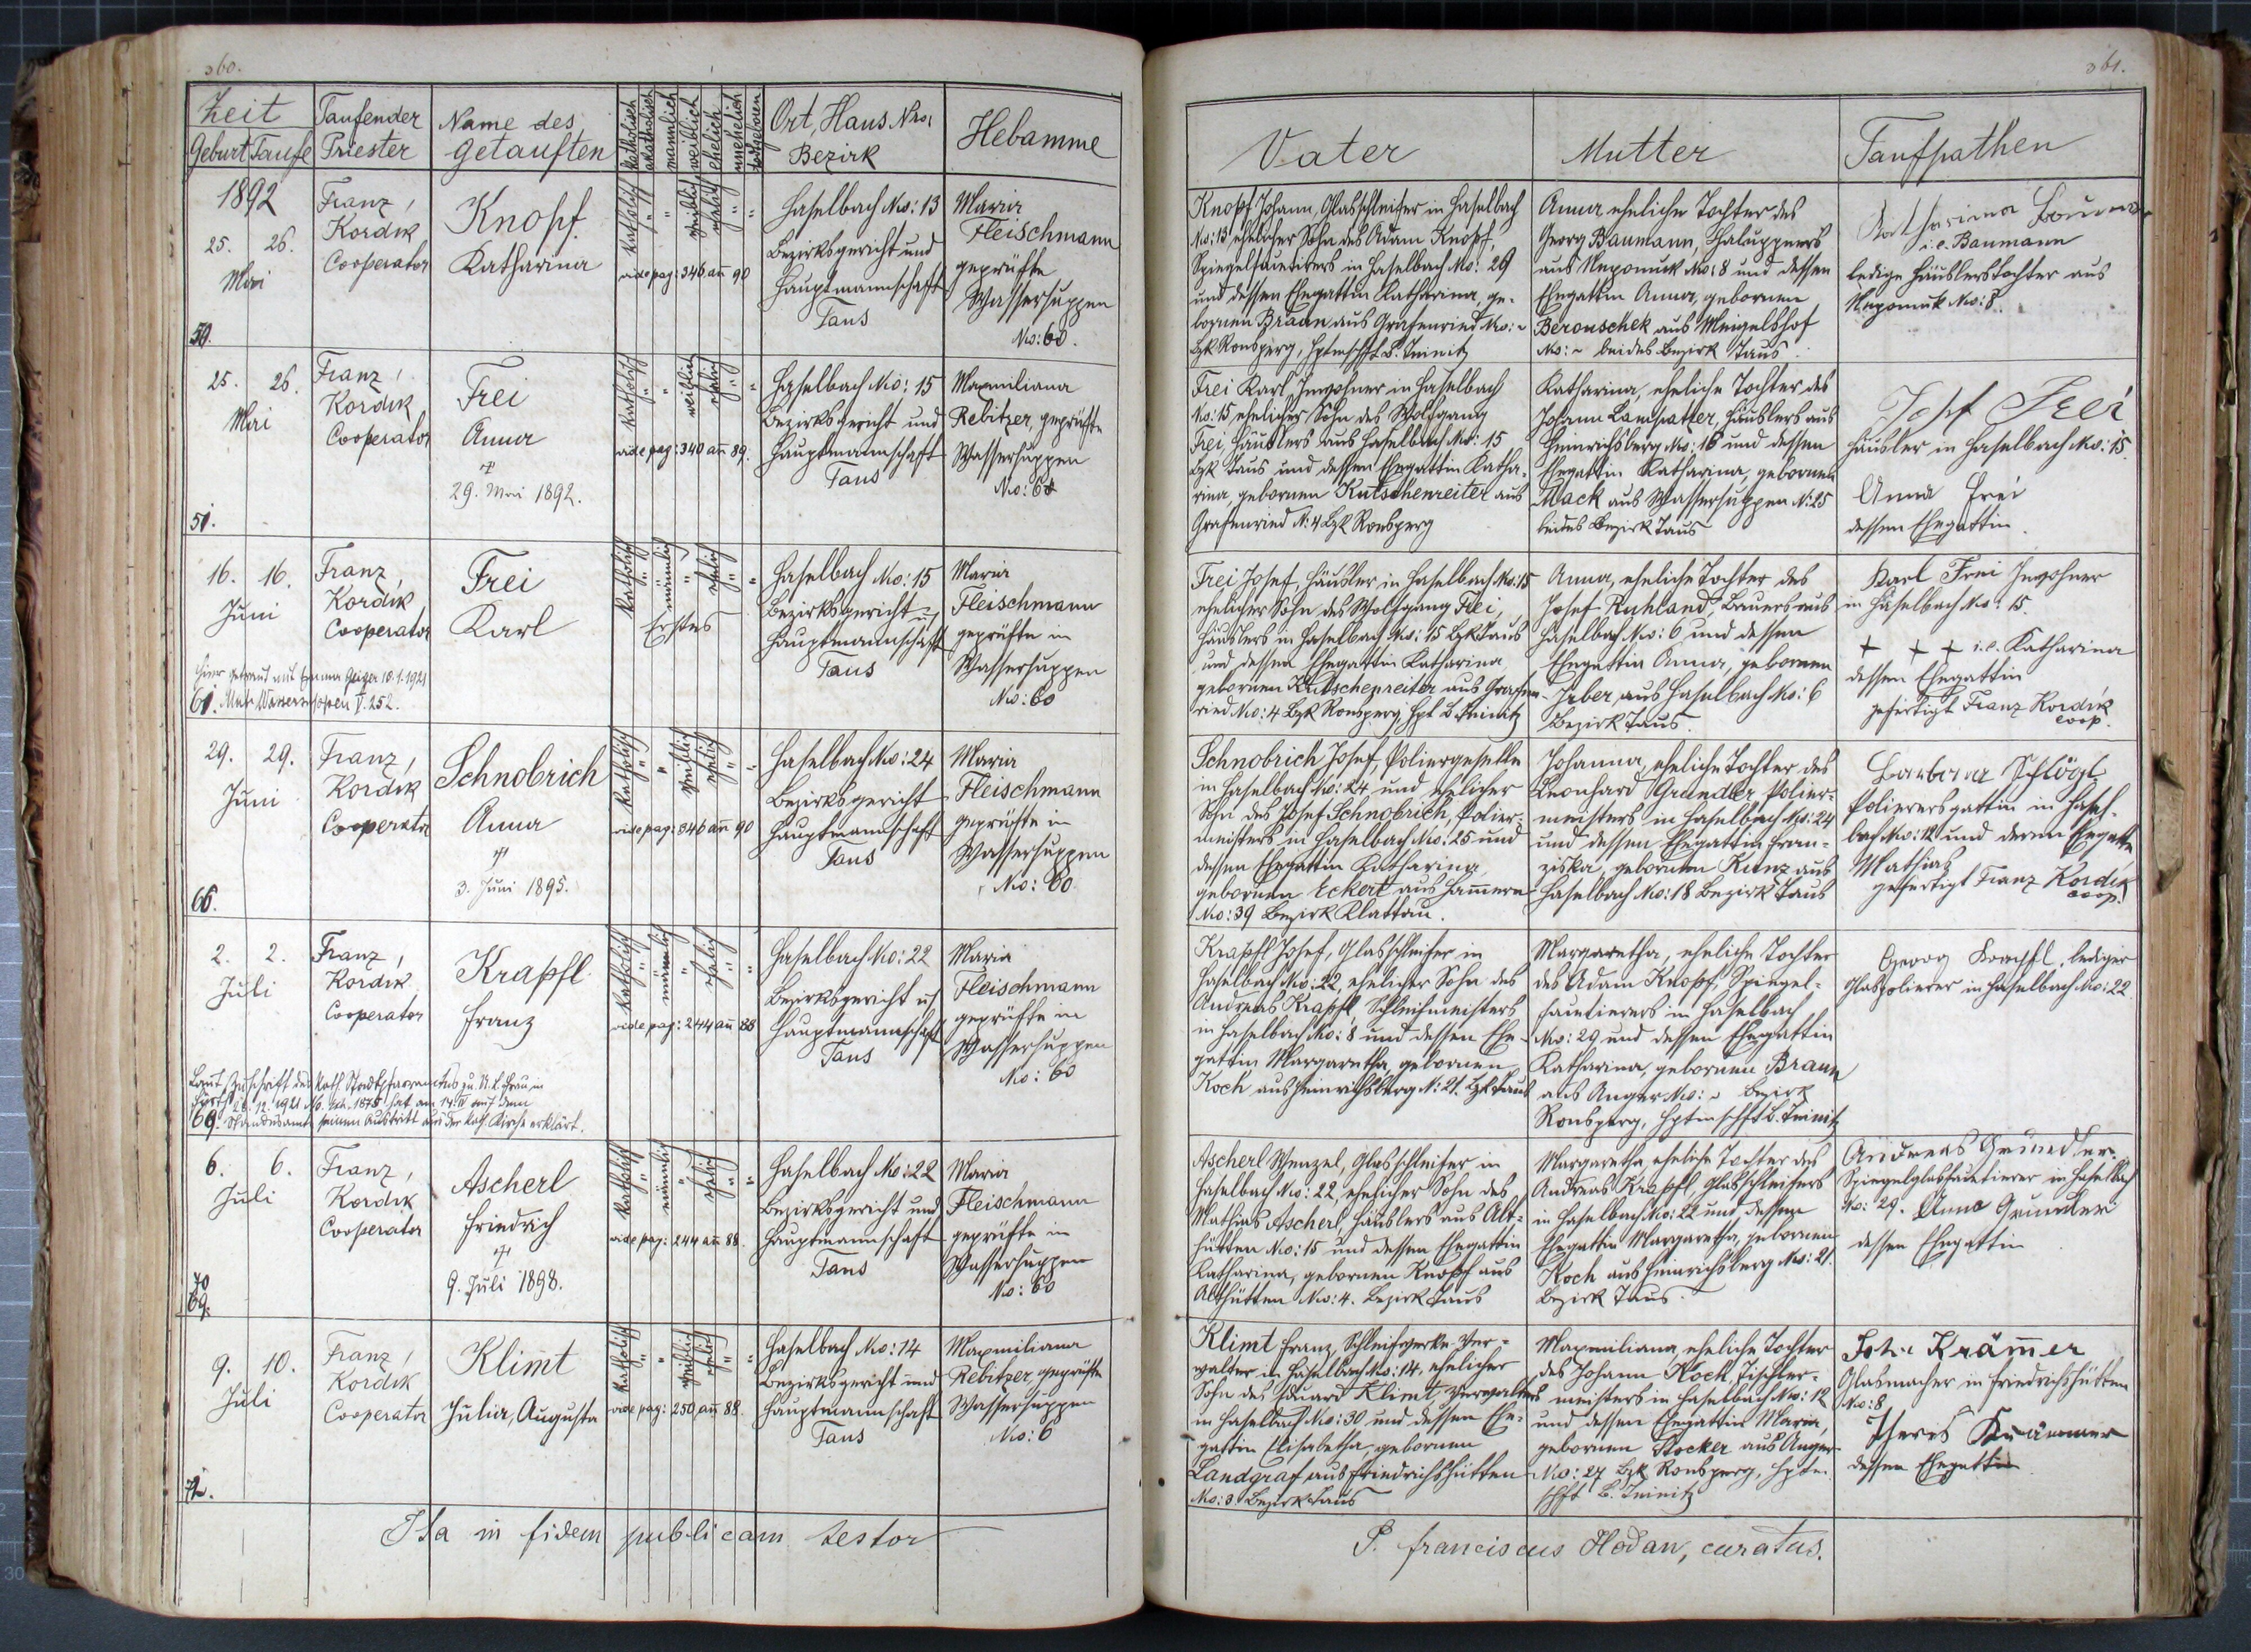 360.
Zeit
Geburt Taufe
Taufender Priester
Name des Getauften
katholisch
akatholisch
männlich
weiblich
ehelich
unehelich
todtgeboren
Ort, Haus Nro:
Bezirk
Hebamme
1892
25. 26.
Mai
50.
Franz
Kordik
Cooperator
Knopf
Katharina
katholisch " " weiblich ehelich " "
vide pag: 346 an̄ 90
Haselbach No: 13
Bezirksgericht und
Hauptmannschaft
Taus
Maria
Fleischmann
geprüfte
Wassersuppen
No: 60.
25. 26.
Mai
51.
Franz
Kordik
Cooperator
Frei
Anna
29. Mai 1892.
katholisch " " weiblich ehelich " "
vide pag: 340 an̄ 89.
Haselbach No: 15
Bezirksgericht und
Hauptmannschaft
Taus
Maxmiliana
Rebitzer, geprüfte
Wassersuppen
No: 6
16. 16.
Juni
Franz
Kordik
Cooperator
Frei
Karl
katholisch " männlich " ehelich " "
Erstes
Haselbach No: 15
Bezirksgericht u.
Hauptmannschaft
Taus
Maria
Fleischmann
geprüfte in
Wassersuppen
No: 60
hier getraut mit Emma Geiger 10.1.1921
61. Matr. Wassersuppen V. 252.
29. 29.
Juni
66.
Franz
Kordik
Cooperator
Schnobrich
Anna
3. Juni 1895.
katholisch " " weiblich ehelich " "
vide pag: 346 an̄ 90
Haselbach No: 24
Bezirksgericht
Hauptmannschaft
Taus
Maria
Fleischmann
geprüfte in
Wassersuppen
No: 60
2. 2.
Juli
Franz
Kordik
Cooperator
Krapfl
Franz
katholisch " männlich " ehelich " "
vide pag: 244 an̄ 88
Haselbach No: 22
Bezirksgericht u.
Hauptmannschaft
Taus
Maria
Fleischmann
geprüfte in
Wassersuppen
No: 60
Laut Zuschrift des kath. Stadtpfarramtes zu U. L. Frau in
Fürth 28. 12. 1921 No. 1875 hat am 14. IV vor dem
69. Standesamte seinen Austritt aus der kath. Kirche erklärt.
6. 6.
Juli
70
69.
Franz
Kordik
Cooperator
Ascherl
Friedrich
9. Juli 1898.
katholisch " männlich " ehelich " "
vide pag: 244 an̄ 88.
Haselbach No: 22
Bezirksgericht und
Hauptmannschaft
Taus
Maria
Fleischmann
geprüfte in
Wassersuppen
No: 60
9. 10.
Juli
Franz
Kordik
Cooperator
Klimt
Julia, Augusta
katholisch " " weiblich ehelich " "
vide pag: 250 an̄ 88.
Haselbach No: 14
Bezirksgericht und
Hauptmannschaft
Taus
Maxmiliana
Rebitzer, geprüfte
Wassersuppen
No: 6
Ita in fidem publicam testor
361.
Vater
Mutter
Taufpathen
Knopf Johann, Glasschleifer in Haselbach
No: 13 ehelicher Sohn des Adam Knopf,
Spiegelfacetirers in Haselbach No: 29
und dessen Ehegattin Katharina, ge-
bornen Braun aus Grafenried No: ~
Bzk Ronsperg, Hptmschft B. Teinitz
Anna eheliche Tochter des
Georg Baumann, Chaluppners
aus Nepomuk No: 8 und dessen
Ehegattin Anna, gebornen
Berouschek aus Meigelshof
No: ~ beides Bezirk Taus.
Katharina Bauman
i.e. Baumann
ledige Häuslerstochter aus
Nepomuk No: 8.
Frei Karl, Inwohner in Haselbach
No: 15 ehelicher Sohn des Wolfgang
Frei, Häuslers aus Haselbach No: 15
Bzk Taus und dessen Ehegattin Katha-
rina, gebornen Kutschenreiter aus
Grafenried N: 4 Bzk Ronsperg
Katharina, eheliche Tochter des
Johann Häuslers aus
Heinrichsberg No: 16 und dessen
Ehegattin Katharina, gebornen
Mack aus Wassersuppen N: 25
beides Bezirk Taus
Josef Frei
Häusler in Haselbach No: 15.
Anna Frei
dessen Ehegattin.
Frei Josef, Häusler in Haselbach No: 15
ehelicher Sohn des Wolfgang Frei,
Häuslers in Haselbach No: 15 Bzk Taus
und dessen Ehegattin Katharina
gebornen Kutschenreiter aus Grafen-
ried No: 4 Bzk Ronsperg, Hpt B. Teinitz
Anna, eheliche Tochter des
Josef Ruhland, Bauers aus
Haselbach No: 6 und dessen
Ehegattin Anna, gebornen
aus Haselbach No: 6
Bezirk Taus.
Karl Frei Inwohner
in Haselbach No: 15.
+ + + i.e. Katharina
dessen Ehegattin
gefertigt Franz Kordík
coop.
Schnobrich Josef, Poliergeselle
in Haselbach No: 24 und ehelicher
Sohn des Josef Schnobrich, Polier-
meisters in Haselbach No: 25 und
dessen Ehegattin Katharina
gebornen Eckert aus Ham̄ern
No: 39 Bezirk Klattau.
Johanna, eheliche Tochter des
Leonhard Grundler Polier-
meisters in Haselbach No: 24
und dessen Ehegattin Fran-
ziska, gebornen Kunz aus
Haselbach No: 18 Bezirk Taus
Barbara Schlögl
Poliersgattin in Hasel-
bach No: 12 und deren Ehegatte
Mathias
gefertigt Franz Kordík
coop.
Krapfl Josef, Glasschleifer in
Haselbach No: 22, ehelicher Sohn des
Andreas Krapfl Schleifmeisters
in Haselbach No: 8 und dessen Ehe-
gattin Margaretha, gebornen
Koch aus Heinrichsberg N: 21. Bzk Taus
Margaretha, eheliche Tochter
des Adam Knopf, Spiegel-
facetierers in Haselbach
No: 29 und dessen Ehegattin
Katharina, gebornen Braun
aus Anger No: ~ Bezirk
Ronsperg, Hptmschft B. Teinitz
Georg Krapfl, lediger
Glaspolierer in Haselbach No: 22.
Ascherl Wenzel, Glasschleifer in
Haselbach No: 22, ehelicher Sohn des
Mathias Ascherl, Häuslers aus Alt-
hütten No: 15 und dessen Ehegattin
Katharina, gebornen Knopf aus
Althütten No: 4. Bezirk Taus
Margaretha, eheliche Tochter des
Andreas Krapfl, Glasschleifers
in Haselbach No: 22 und dessen
Ehegattin Margaretha, gebornen
Koch aus Heinrichsberg No: 21.
Bezirk Taus.
Andreas Grundler.
Spiegelglasfacetierer in Haselbach
No: 29. Anna Grundler
dessen Ehegattin
Klimt Franz, Schleifwerks-Ver-
walter in Haselbach No: 14, ehelicher
Sohn des Eduard Klimt Verwalters
in Haselbach No: 30 und dessen Ehe-
gattin Elisabetha, gebornen
Landgraf aus Friedrichshütten
No: 3. Bezirk Taus
Maxmiliana, eheliche Tochter
des Johann Köck, Tischler-
meisters in Haselbach No: 12
und dessen Ehegattin Maria,
gebornen Stocker aus Anger
No: 27 Bzk Ronsperg, Hptm-
schft B. Teinitz
Joh. Kräm̄er
Glasmacher in Friedrichshütten
No: 8
Kräm̄er
dessen Ehegattin
P. Franciscus Hodan, curatus.